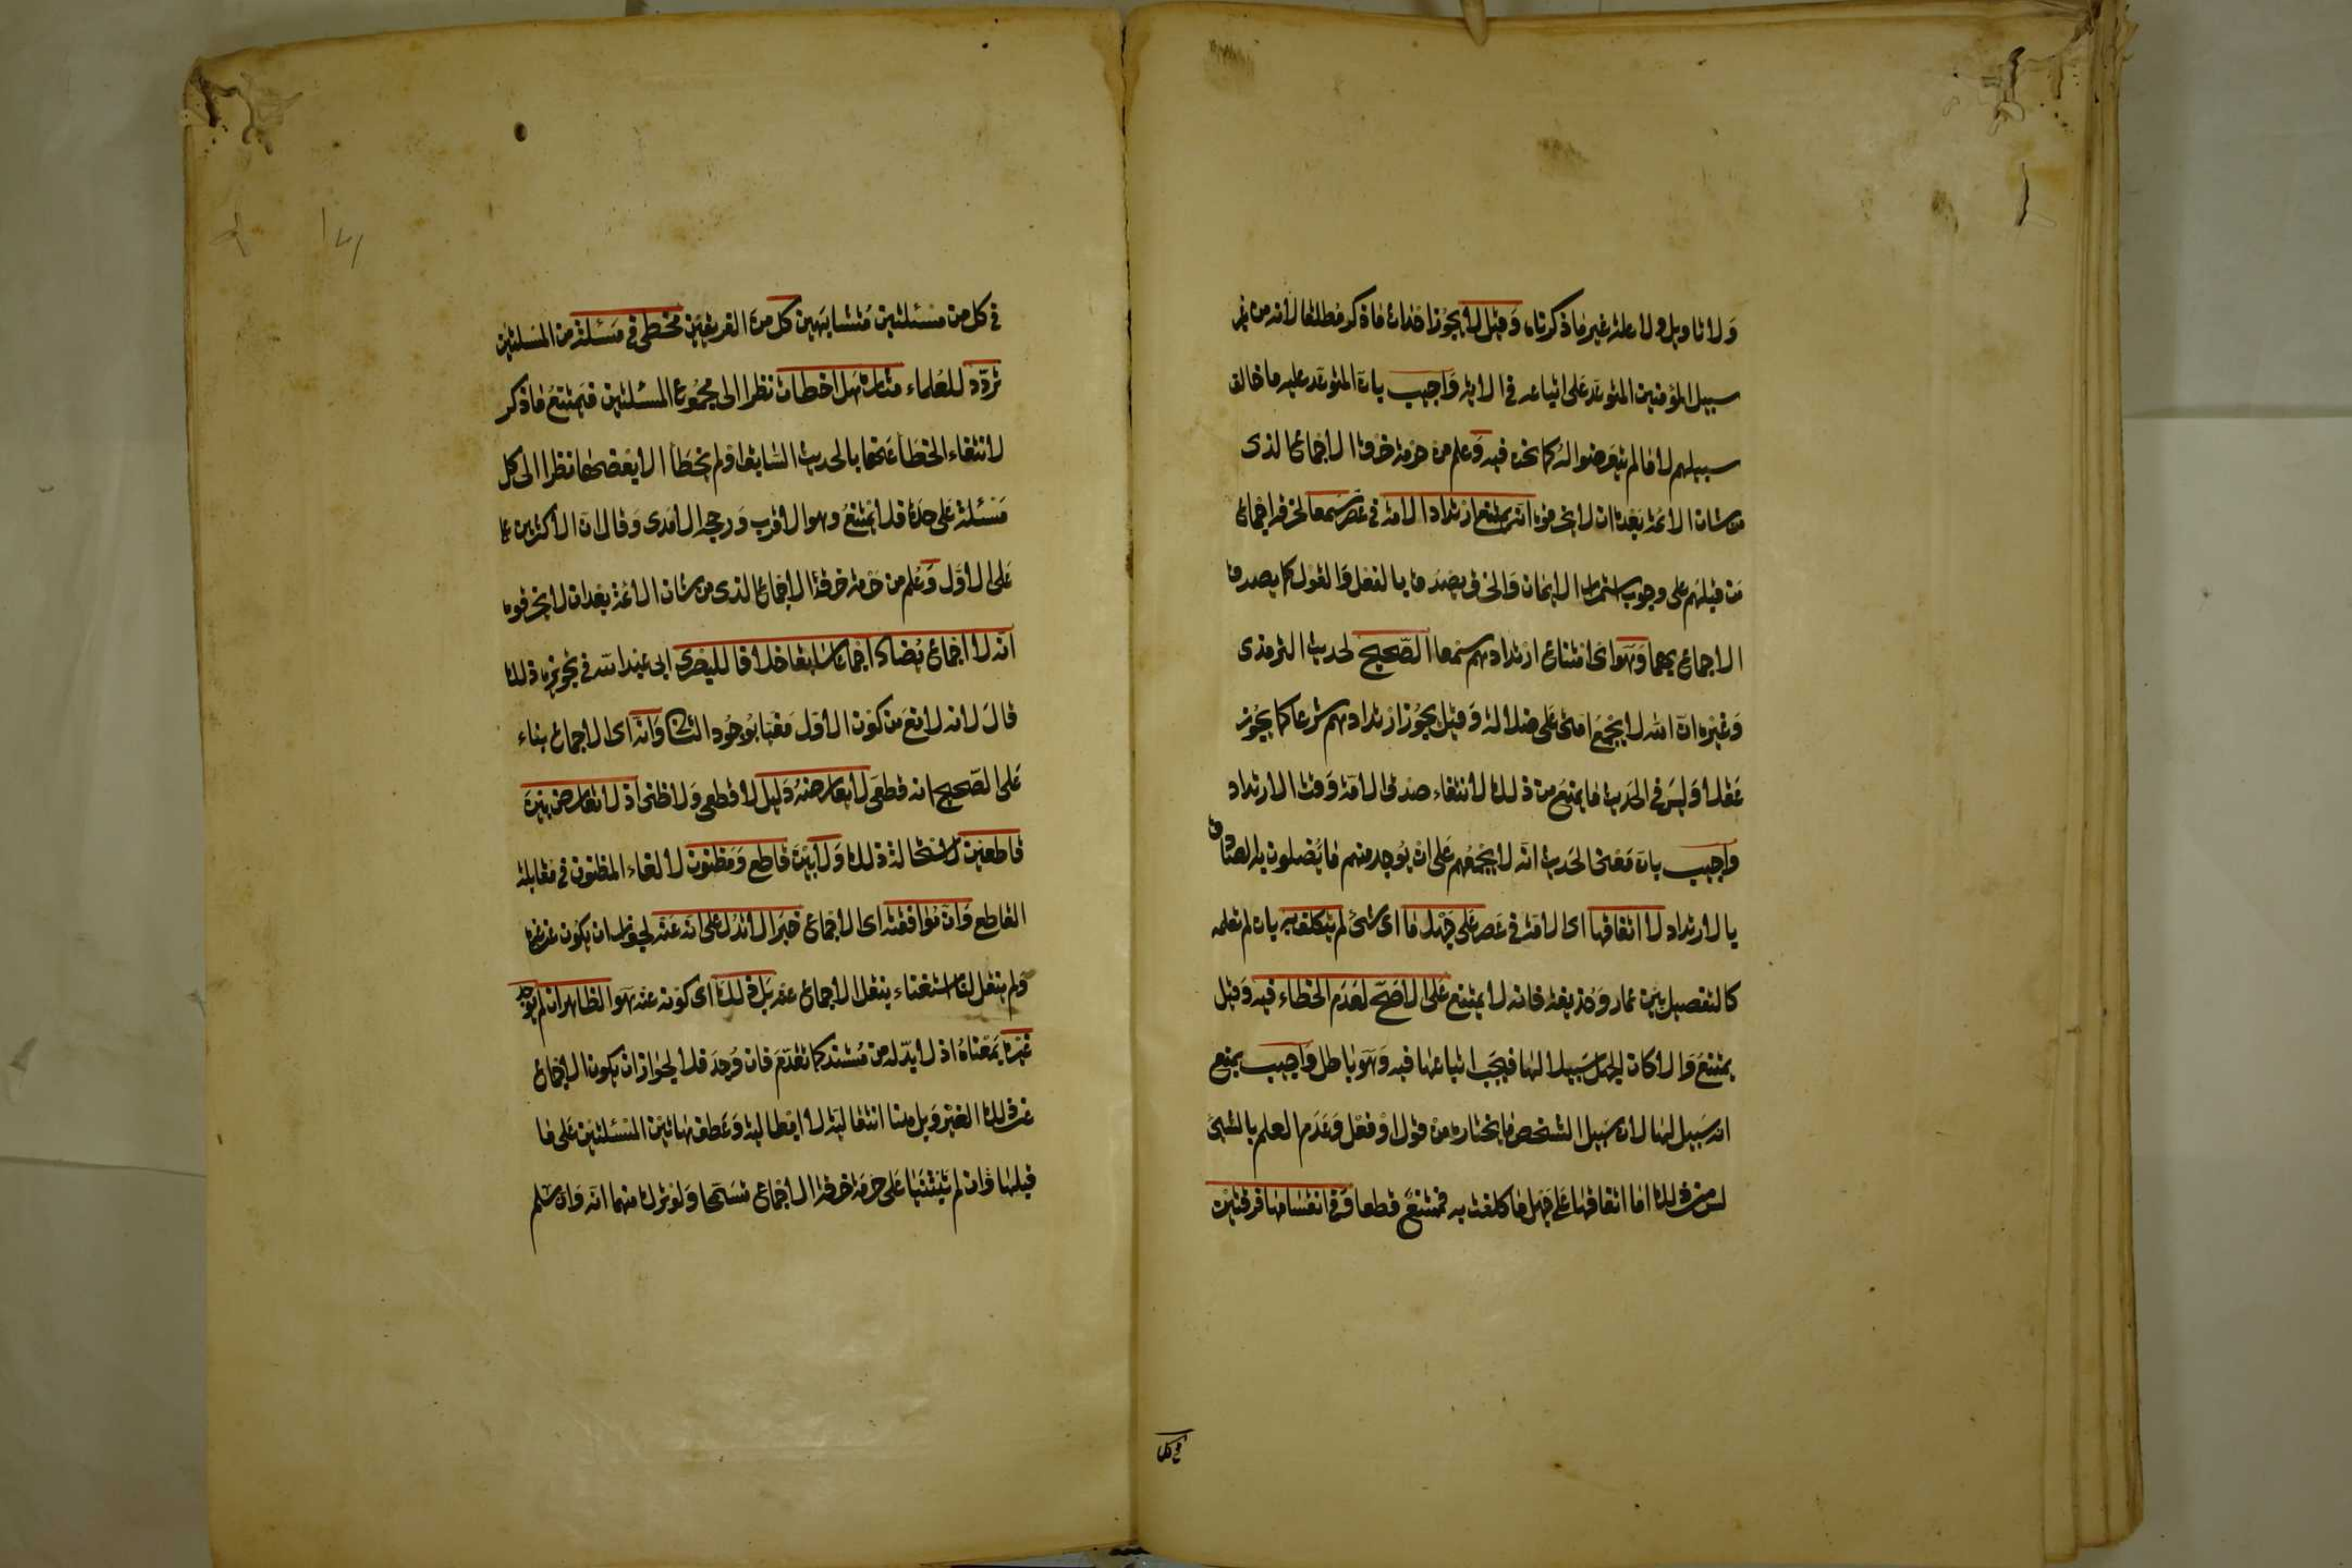 ولا تاويل ولا علة غير ما ذكرناه وقيل لا يجوز احداث ما ذكر مطلقا لانه من غير
سبيل المؤمنين المتوعد على اتباعه في الاية واجيب بان المتوعد عليه ما خالف
سبيلهم لا ما لم يتعرضوا له كما نحن فيه وعلم من حرمة خرق الاجماع الذى
من شان الائمة بعده ان لا يخرقوه انه يمتنع ارتداد الامة في عصر سمعا لخرقه اجماع
من قبلهم على وجوب استمرار الايمان والخرق يصدق بالفعل والقول كما يصدق
الاجماع بهما وهو اى امتناع ارتدادهم سمعا الصحيح لحديث الترمذى
وغيره ان الله لا يجمع امتى على ضلالة وقيل يجوز ارتدادهم شرعا كما يجوز
عقلا وليس في الحديث ما يمنع من ذلك لانتفاء صدق الامة وقت الارتداد
واجيب بان معنى الحديث انه لا يجمعهم على ان يوجد منهم ما يضلون به الصادق
بالارتداد لا اتفاقها اى الامة في عصر على جهل ما اى شئ لم يتكلف به بان لم تعلمه
كالتفصيل بين عمار وحذيفة فانه لا يمتنع على الاصح لعدم الخطاء فيه وقيل
يمتنع والا كان الجهل سبيلا لها فيجب اتباعها فيه وهو باطل واجيب بمنع
انه سبيل لها لان سبيل الشخص ما يختاره من قول او فعل وعدم العلم بالشئ
ليس من ذلك اما اتفاقها على جهل ما كلفت به فممتنع قطعا وفي انقسامها فرقتين
في كل
في كل من مسئلتين متشابهين كل من الفريقين مخطى في مسئلة من المسئلتين
تردد للعلماء مثاره هل اخطات نظرا الى مجموع المسئلتين فيمتنع ما ذكر
لانتفاء الخطا عنها بالحديث السابق او لم يخطا الا بعضها نظرا الى كل
مسئلة على حدة فلا يمتنع وهو الاقرب ورجحه الامدى وقال ان الاكثرين
على الاول وعلم من حرمة خرق الاجماع الذى من شان الائمة بعد ان لا يخرقوه
انه لا اجماع يضاد اجماعا سابقا خلافا للبصرى ابى عبد الله في تجويزه ذلك
قال لانه لا مانع من كون الاول مغيا بوجود الثانى وانه اى الاجماع بناء
على الصحيح انه قطعى لا يعارضه دليل لا قطعى ولا ظنى اذ لا تعارض بين
قاطعين لاستحالة ذلك ولا بين قاطع ومظنون لالغاء المظنون في مقابلة
القاطع وان موافقته اى الاجماع خبرا لا تدل على انه عنه لجواز ان يكون عن غيره
ولم ينقل لنا استغناء بنقل الاجماع عنه بل ذلك اى كونه عنه هو الظاهر ان لم يوجد
غيره بمعناه اذ لا بد له من مستند كما تقدم فان وجد فلا لجواز ان يكون الاجماع
عن ذلك الغير وبل هنا انتقالية لا ابطالية وعطف هاتين المسئلتين على ما
قبلها وان لم تبتنيا على حرمة خرق الاجماع تسمحا ولو ترك منهما انه وان سلم